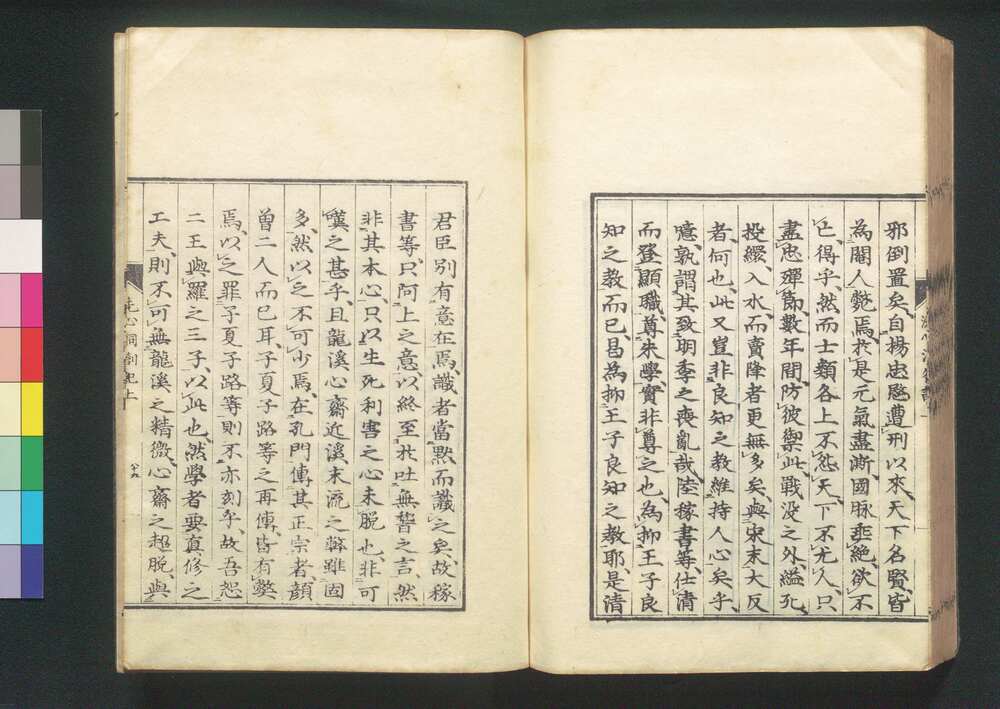 邪倒置矣、自楊忠愍遭刑以來、天下名賢、皆
為閹人斃焉、於是元氣盡澌、國脉垂絶、欲不
亡得乎、然而士類各上不怨天、下不尤人、只
盡忠殫節、數年間、防彼禦此、戰沒之外、縊死
投繯入水、而賣降者更無多矣、與宋末大反
者、何也、此又豈非良知之教維持人心矣乎、
噫、孰謂其致明季之喪亂哉、陸稼書等、仕清
而登顯職、尊朱學、實非尊之也、為抑王子良
知之教而已、曷為抑王子良知之教耶、是清
君臣別有意在焉、識者當默而識之矣、故稼
書等、只阿上之意以終至於吐無誓之言、然
非其本心、只以生死利害之心未脱也、非可
嘆之甚乎、且龍溪心齋近溪末流之弊雖固
多、然以之不可少焉、在孔門傳其正宗者、顏
曾二人而已耳、子夏子路等之再傳、皆有獘
焉、以之罪子夏子路等則不亦刻乎、故吾恕
二王與羅之三子、以此也、然學者要真修之
工夫、則不可無龍溪之精微、心齋之超脱、與
洗心洞劄記上